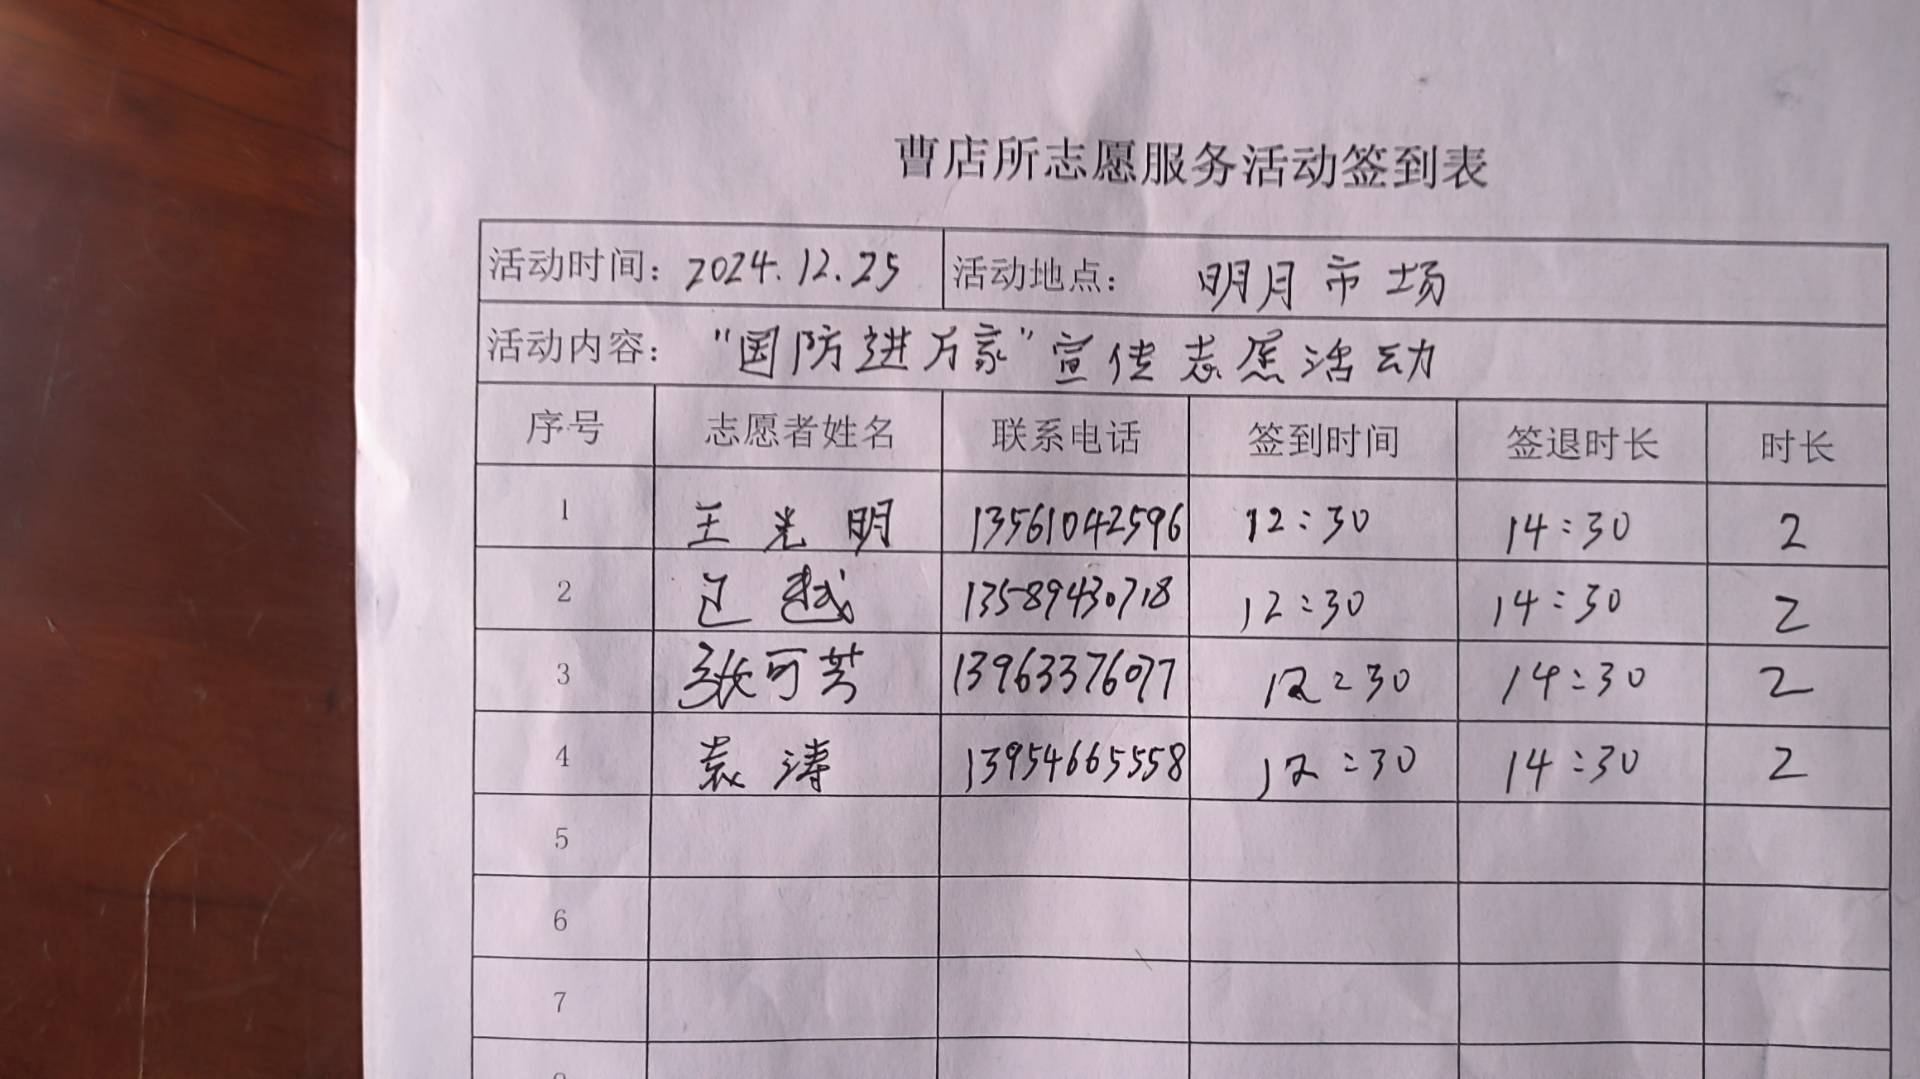 曹店所志愿服务活动签到表
活动时间：2024.12.25 活动地点：明月市场
活动内容："国防进万家"宣传志愿活动
序号 志愿者姓名 联系电话 签到时间 签退时长 时长
1 王光明 13561042596 12:30 14:30 2
2 越 13589430718 12:30 14:30 2
3 张可芳 13963376077 12:30 14:30 2
4 袁涛 13954665558 12:30 14:30 2
5
6
7